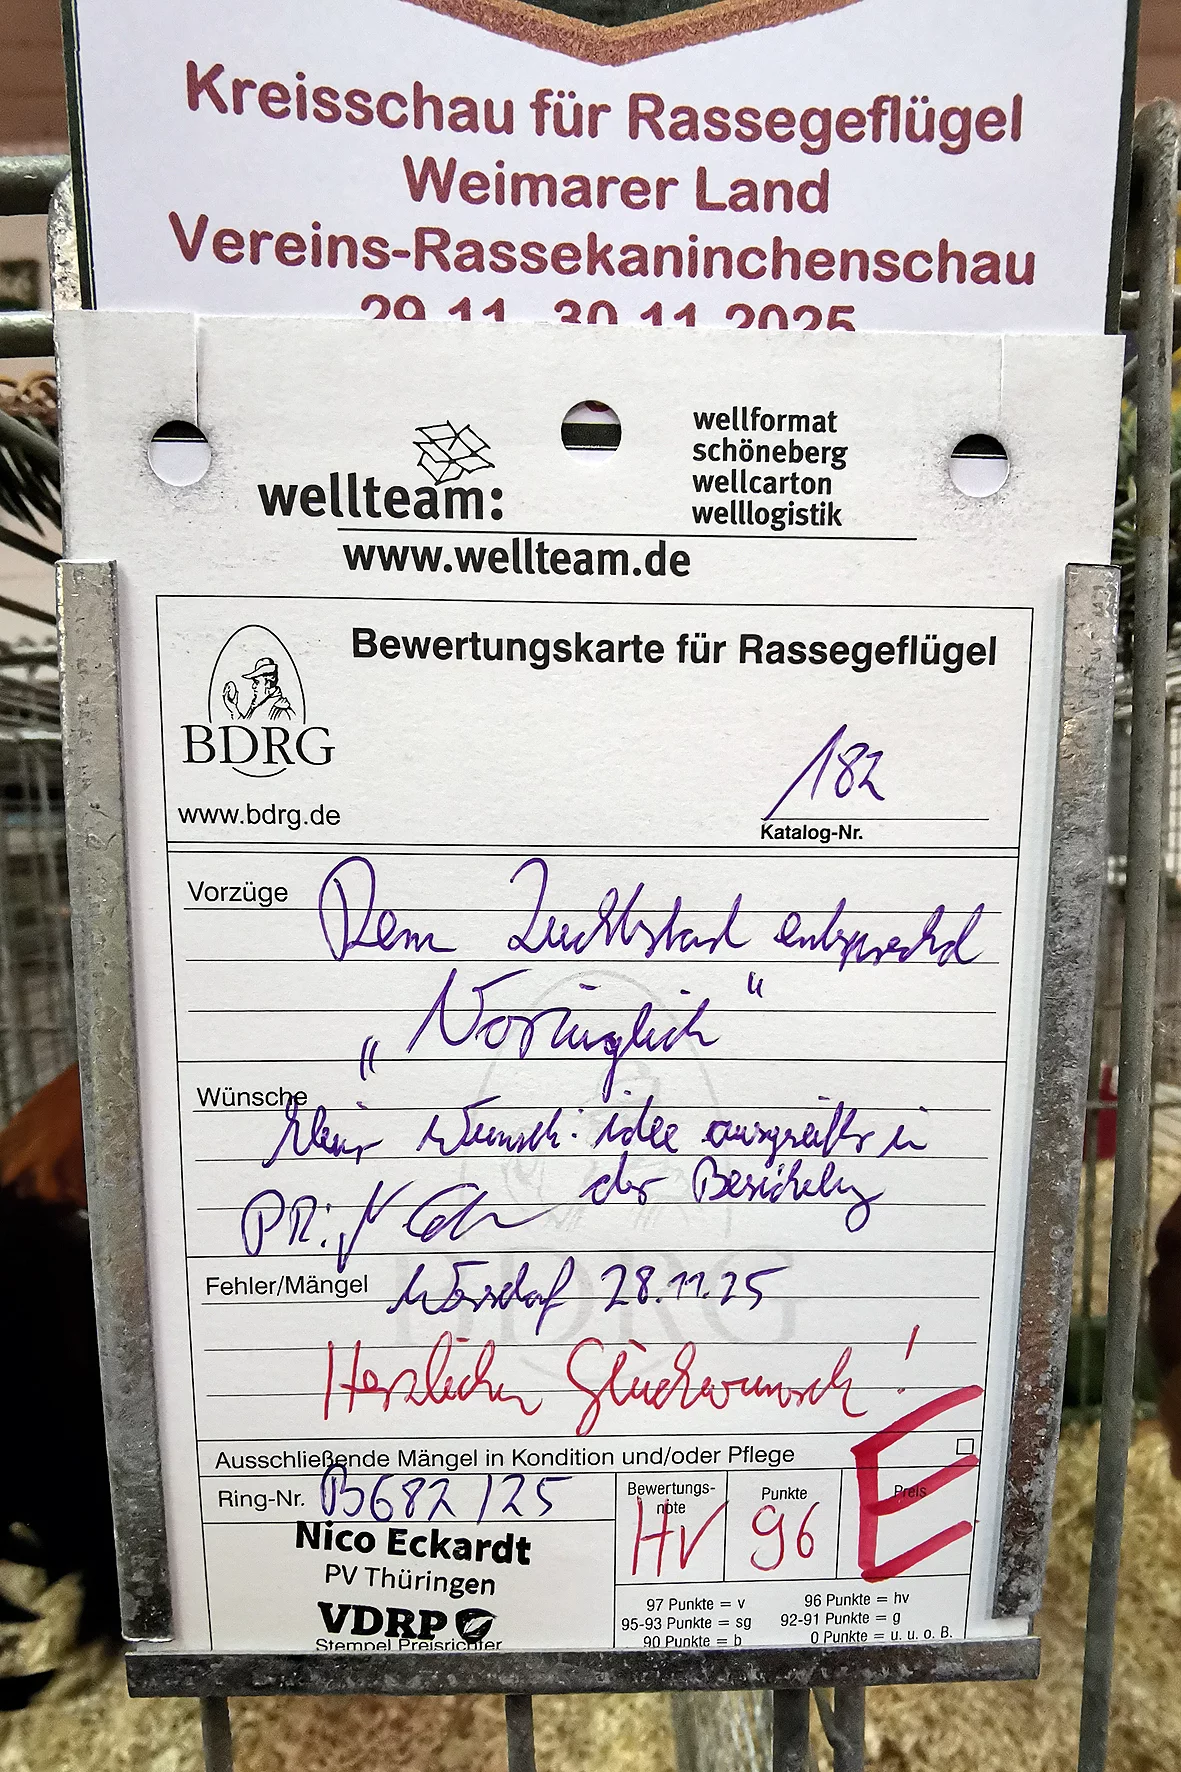 Kreisschau für Rassegeflügel
Weimarer Land
Vereins-Rassekaninchenschau
29.11. 30.11.2025
wellteam:
wellformat
schöneberg
wellcarton
welllogistik
www.wellteam.de
BDRG
www.bdrg.de
Bewertungskarte für Rassegeflügel
182
Katalog-Nr.
Vorzüge
Dem Zuchtstand entsprechd
„Vorzüglich“
Wünsche
Wunsch: idee in
der
PR:
Fehler/Mängel
28.11.25
Herzlichen Glückwunsch!
Ausschließende Mängel in Kondition und/oder Pflege
Ring-Nr. B682/25
Nico Eckardt
PV Thüringen
VDRP
Stempel Preisrichter
Bewertungs-
note
HV
Punkte
96
Preis
E
97 Punkte = v
95-93 Punkte = sg
90 Punkte = b
96 Punkte = hv
92-91 Punkte = g
0 Punkte = u. u. o. B.
BDRG